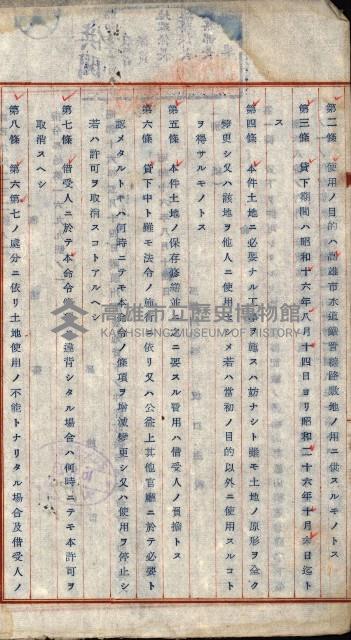 第二條 使用ノ目的ハ高雄市水道線普線路敷地ノ用ニ供スルモノトス
第三條 貸下期間ハ昭和十六年八月十四日ヨリ昭和二十六年十月末日迄ト
ス
第四條 本件土地ニ必要ナル工事ヲ施スハ妨ナシト雖モ土地ノ原形ヲ全ク
變更シ又ハ該地ヲ他人ニ使用セシメ若ハ當初ノ目的以外ニ使用スルコト
ヲ得サルモノトス
第五條 本件土地ノ保存修繕並之ニ要スル費用ハ借受人ノ負擔トス
第六條 貸下中ト雖モ法令ノ施行ニ依リ又ハ公益上其他官廳ニ於テ必要ト
認メタルトキハ何時ニテモ本命令ノ條項ヲ增減變更シ又ハ使用ヲ停止シ
若ハ許可ヲ取消スコトアルヘシ
第七條 借受人ニ於テ本命令條項ニ違背シタル場合ハ何時ニテモ本許可ヲ
取消スヘシ
第八條 第六第七ノ處分ニ依リ土地使用ノ不能トナリタル場合及借受人ノ
高雄市立歷史博物館
KAOHSIUNG MUSEUM OF HISTORY